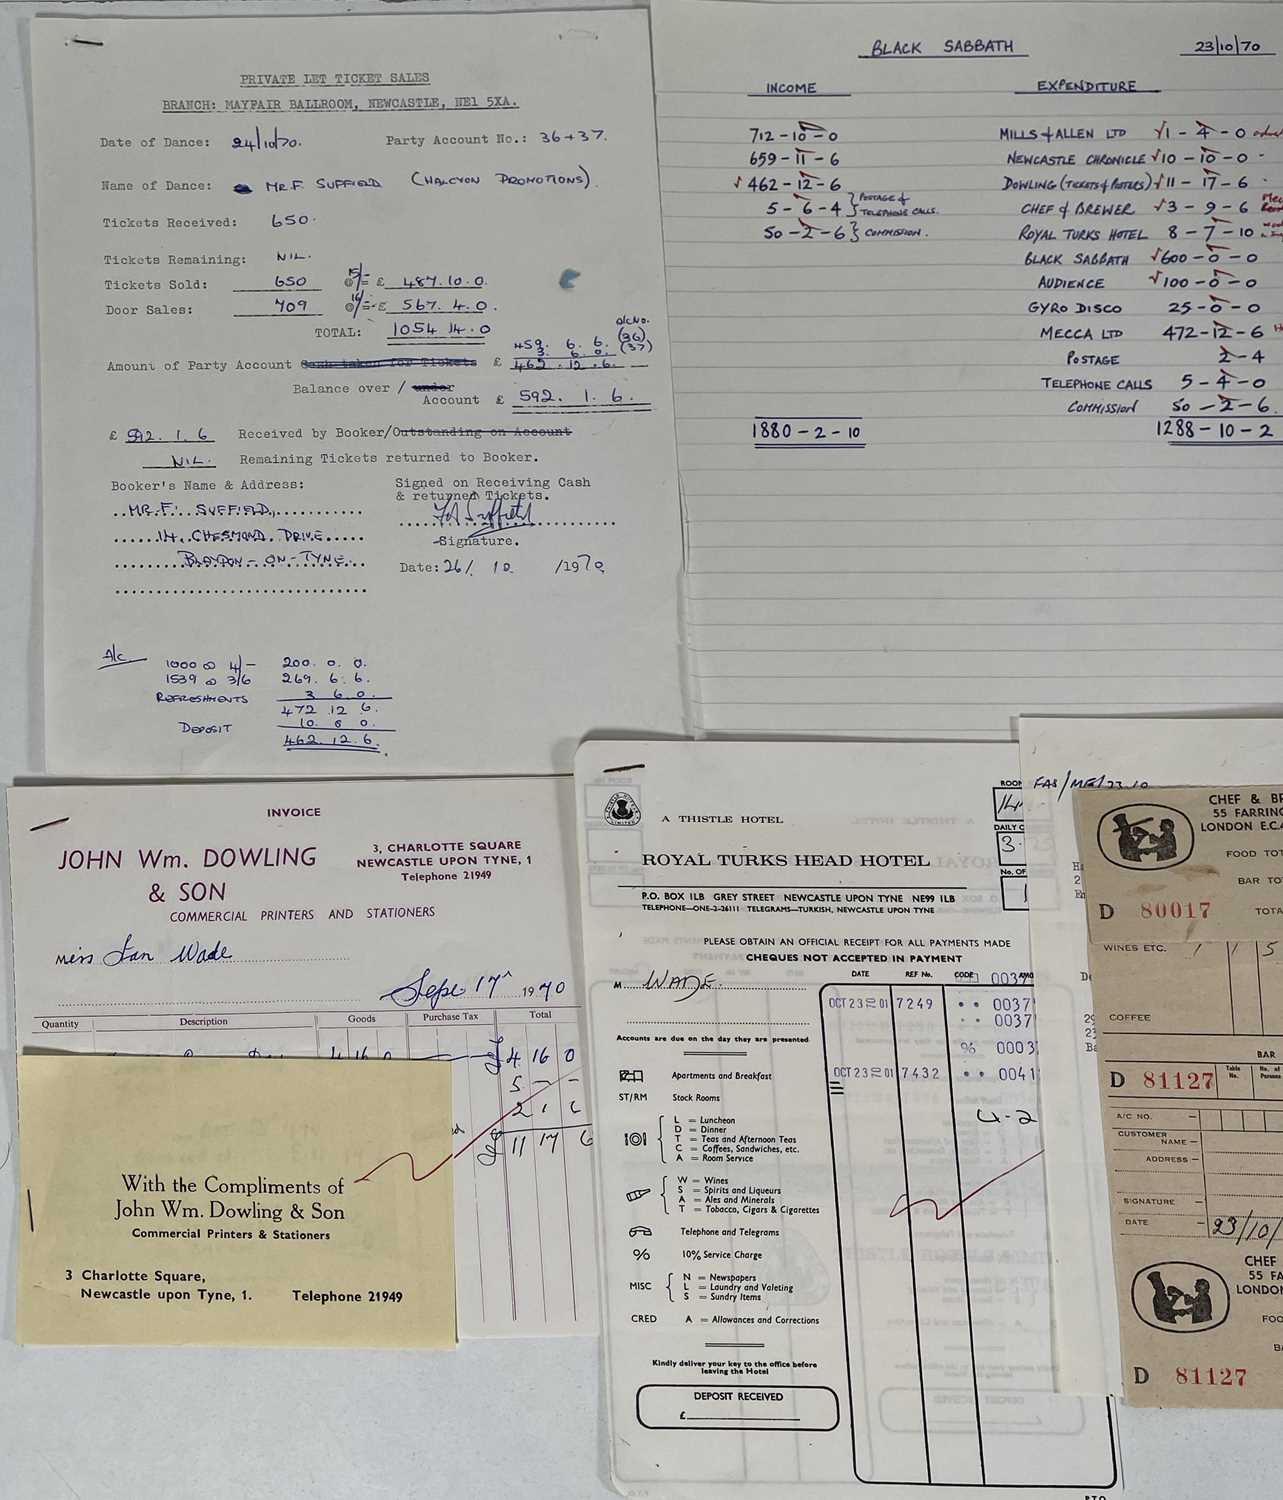 PRIVATE LET TICKET SALES
BRANCH: MAYFAIR BALLROOM, NEWCASTLE, NE1 5XA.
Date of Dance: 24/10/70. Party Account No.: 36+37.
Name of Dance: MR.F. SUFFIELD (HALCYON PROMOTIONS).
Tickets Received: 650.
Tickets Remaining: NIL.
Tickets Sold: 650 @ 15/= £ 487.10.0.
Door Sales: 709 @ 16/= £ 567.4.0.
TOTAL: 1054.14.0
A/c No.
459. 6. 6. (36)
3. 6. 0. (37)
Amount of Party Account Cash taken for Tickets £ 462.12.6.
Balance over / under
Account £ 592. 1. 6.
£ 592.1.6 Received by Booker/Outstanding on Account
NIL. Remaining Tickets returned to Booker.
Booker's Name & Address:
MR.F. SUFFIELD,
14, CHESMOND DRIVE
BLAYDON-ON-TYNE.
Signed on Receiving Cash
& returned Tickets.
Signature.
Date: 26/ 10 /1970
A/c
1000 @ 4/- 200. 0. 0.
1539 @ 3/6 269. 6. 6.
REFRESHMENTS 3 6 0.
472 12 6.
DEPOSIT 10. 0 0.
462.12.6.
BLACK SABBATH 23/10/70
INCOME EXPENDITURE
712-10-0 MILLS & ALLEN LTD 1-4-0
659-11-6 NEWCASTLE CHRONICLE 10-10-0
462-12-6 DOWLING (TICKETS & POSTERS) 11-17-6
5-6-4 } POSTAGE & TELEPHONE CALLS. CHEF & BREWER 3-9-6
50-2-6 } COMMISSION. ROYAL TURKS HOTEL 8-7-10
BLACK SABBATH 600-0-0
AUDIENCE 100-0-0
GYRO DISCO 25-0-0
MECCA LTD 472-12-6
POSTAGE 2-4
TELEPHONE CALLS 5-4-0
COMMISSION 50-2-6.
1880-2-10 1288-10-2
INVOICE
JOHN Wm. DOWLING
& SON
3, CHARLOTTE SQUARE
NEWCASTLE UPON TYNE, 1
Telephone 21949
COMMERCIAL PRINTERS AND STATIONERS
Miss Wade
Sept 17th 1970
Quantity Description Goods Purchase Tax Total
4 16 0 £ 4 16 0
5 - -
2 1 6
£ 11 17 6
With the Compliments of
John Wm. Dowling & Son
Commercial Printers & Stationers
3 Charlotte Square,
Newcastle upon Tyne, 1. Telephone 21949
A THISTLE HOTEL
ROYAL TURKS HEAD HOTEL
P.O. BOX 1LB GREY STREET NEWCASTLE UPON TYNE NE99 1LB
TELEPHONE—ONE-2-26111 TELEGRAMS—TURKISH, NEWCASTLE UPON TYNE
ROOM
DAILY C
No. OF
PLEASE OBTAIN AN OFFICIAL RECEIPT FOR ALL PAYMENTS MADE
CHEQUES NOT ACCEPTED IN PAYMENT
M WADE. DATE REF No. CODE
OCT 23 7249 0037
0037
Accounts are due on the day they are presented
% 0003
OCT 23 7432 0041
4-2
Apartments and Breakfast
ST/RM Stock Rooms
L = Luncheon
D = Dinner
T = Teas and Afternoon Teas
C = Coffees, Sandwiches, etc.
A = Room Service
W = Wines
S = Spirits and Liqueurs
A = Ales and Minerals
T = Tobacco, Cigars & Cigarettes
Telephone and Telegrams
% 10% Service Charge
MISC N = Newspapers
L = Laundry and Valeting
S = Sundry Items
CRED A = Allowances and Corrections
Kindly deliver your key to the office before
leaving the Hotel
DEPOSIT RECEIVED
£
P.T.O.
FAS/ME/23.10
CHEF & BR
55 FARRING
LONDON E.C.4
FOOD TOT
BAR TO
D 80017 TOTA
WINES ETC. 1 1 5
COFFEE
BAR
D 81127 Table No. No. of Persons
A/C NO.
CUSTOMER NAME
ADDRESS
SIGNATURE
DATE 23/10/
CHEF
55 FA
LONDO
FOO
D 81127